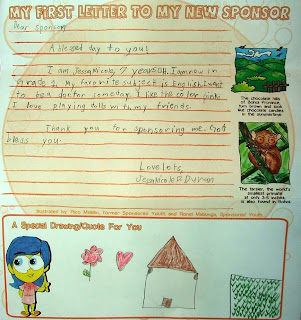 MY FIRST LETTER TO MY NEW SPONSOR
Dear Sponsor,
A blessed day to you!
I am Jessa Nicole, 7 years old, I am now in
Grade 2. My favorite subject is English. I want
to be a doctor someday. I like the color pink.
I love playing dolls with my friends.
Thank you for sponsoring me. God
bless you.
Love lots,
Jessa Nicole
The chocolate hills
of Bohol Province,
turn brown and look
like chocolate candies
in the summertime.
The tarsier, the world's
smallest primate
at only 3-5 inches,
is also found in Bohol.
Illustrated by: Former Sponsored Youth and Sponsored Youth
A Special Drawing/Quote For You